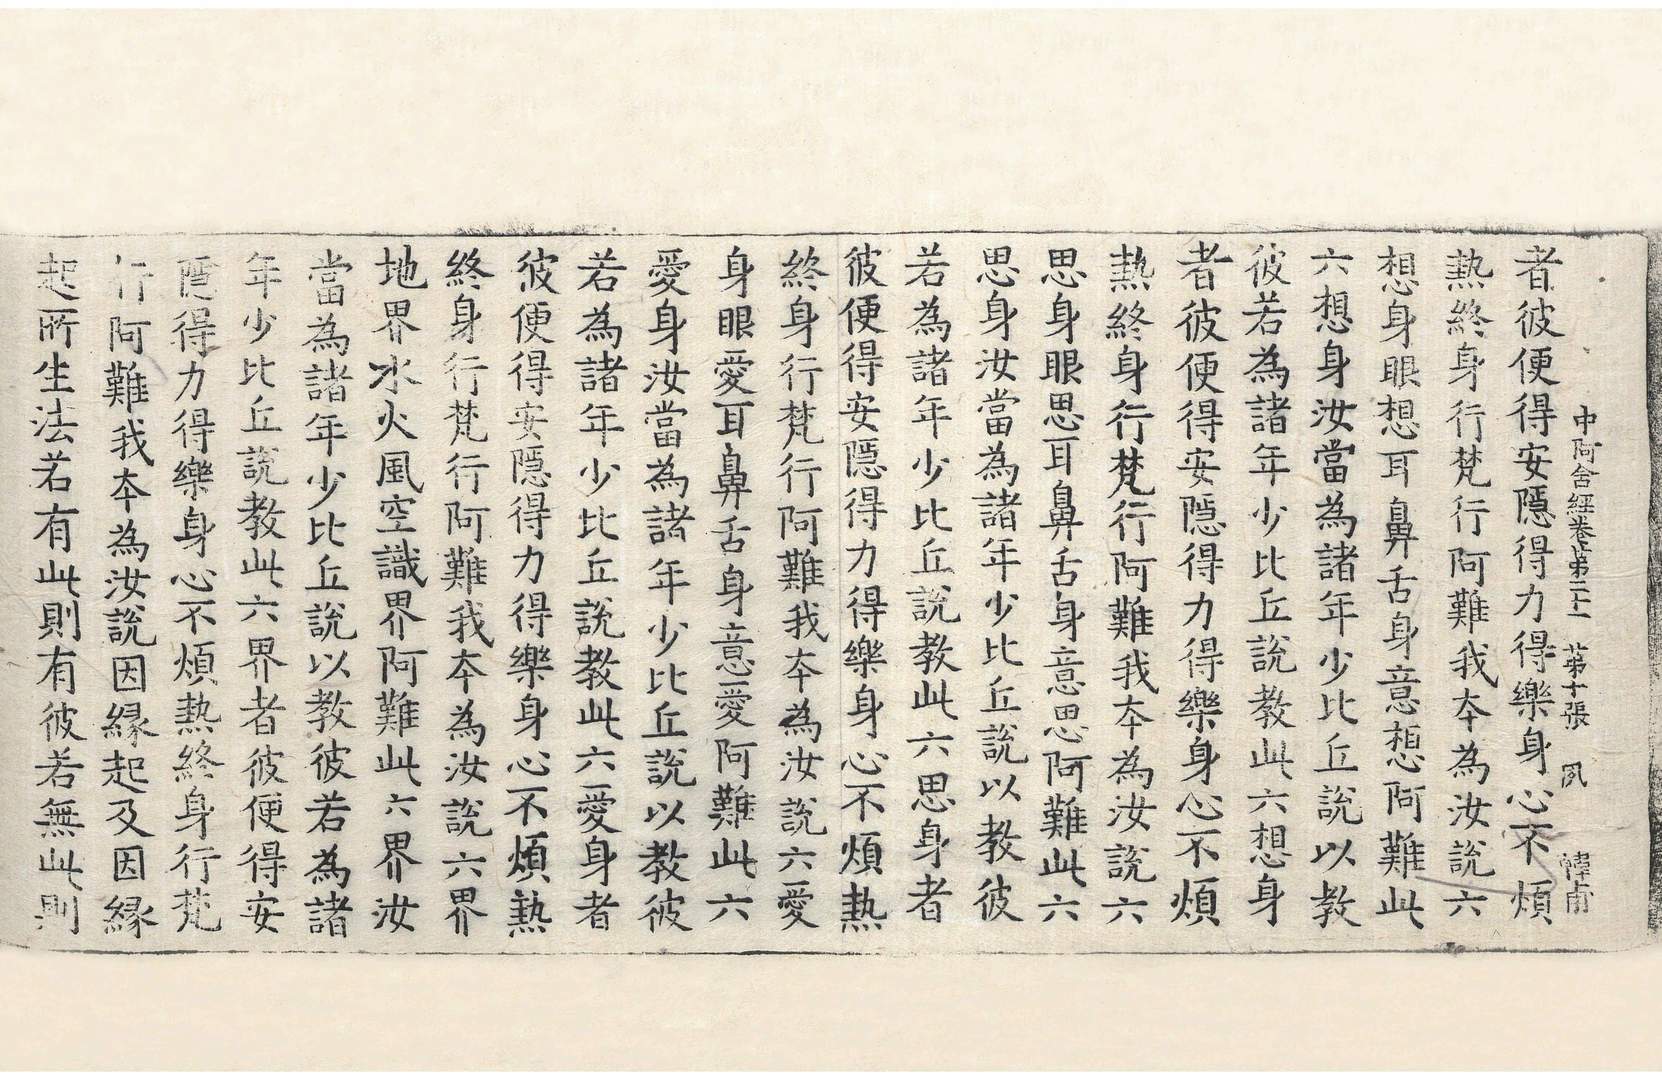 中阿含經卷第二十一 第十張 夙
者彼便得安隱得力得樂身心不煩
熱終身行梵行阿難我夲為汝說六
想身眼想耳鼻舌身意想阿難此
六想身汝當為諸年少比丘說以教
彼若為諸年少比丘說教此六想身
者彼便得安隱得力得樂身心不煩
熱終身行梵行阿難我夲為汝說六
思身眼思耳鼻舌身意思阿難此六
思身汝當為諸年少比丘說以教彼
若為諸年少比丘說教此六思身者
彼便得安隱得力得樂身心不煩熱
終身行梵行阿難我夲為汝說六愛
身眼愛耳鼻舌身意愛阿難此六
愛身汝當為諸年少比丘說以教彼
若為諸年少比丘說教此六愛身者
彼便得安隱得力得樂身心不煩熱
終身行梵行阿難我夲為汝說六界
地界水火風空識界阿難此六界汝
當為諸年少比丘說以教彼若為諸
年少比丘說教此六界者彼便得安
隱得力得樂身心不煩熱終身行梵
行阿難我夲為汝說因緣起及因緣
起所生法若有此則有彼若無此則